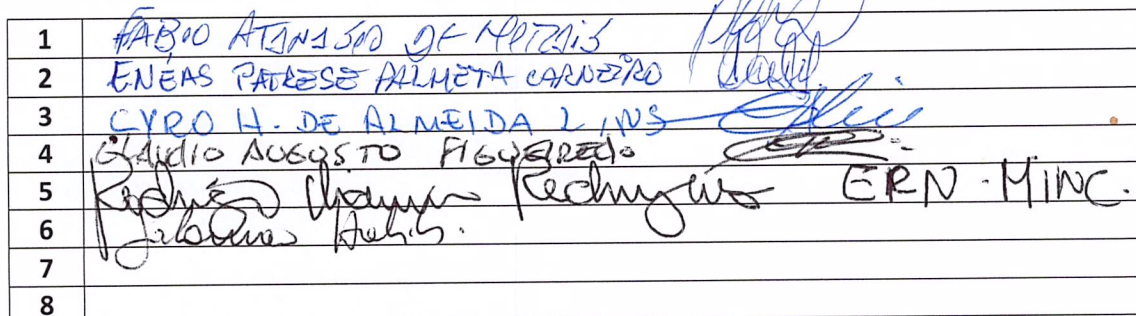 1 FÁBIO ATANÁSIO DE MORAIS
2 ENÉAS PATRESE PALMEYA CARNEIRO
3 CYRO H. DE ALMEIDA LINS
4 CLÁUDIO AUGUSTO FIGUEIREDO
5 Rodrigo Rodrigues ERN-MINC.
6
7
8